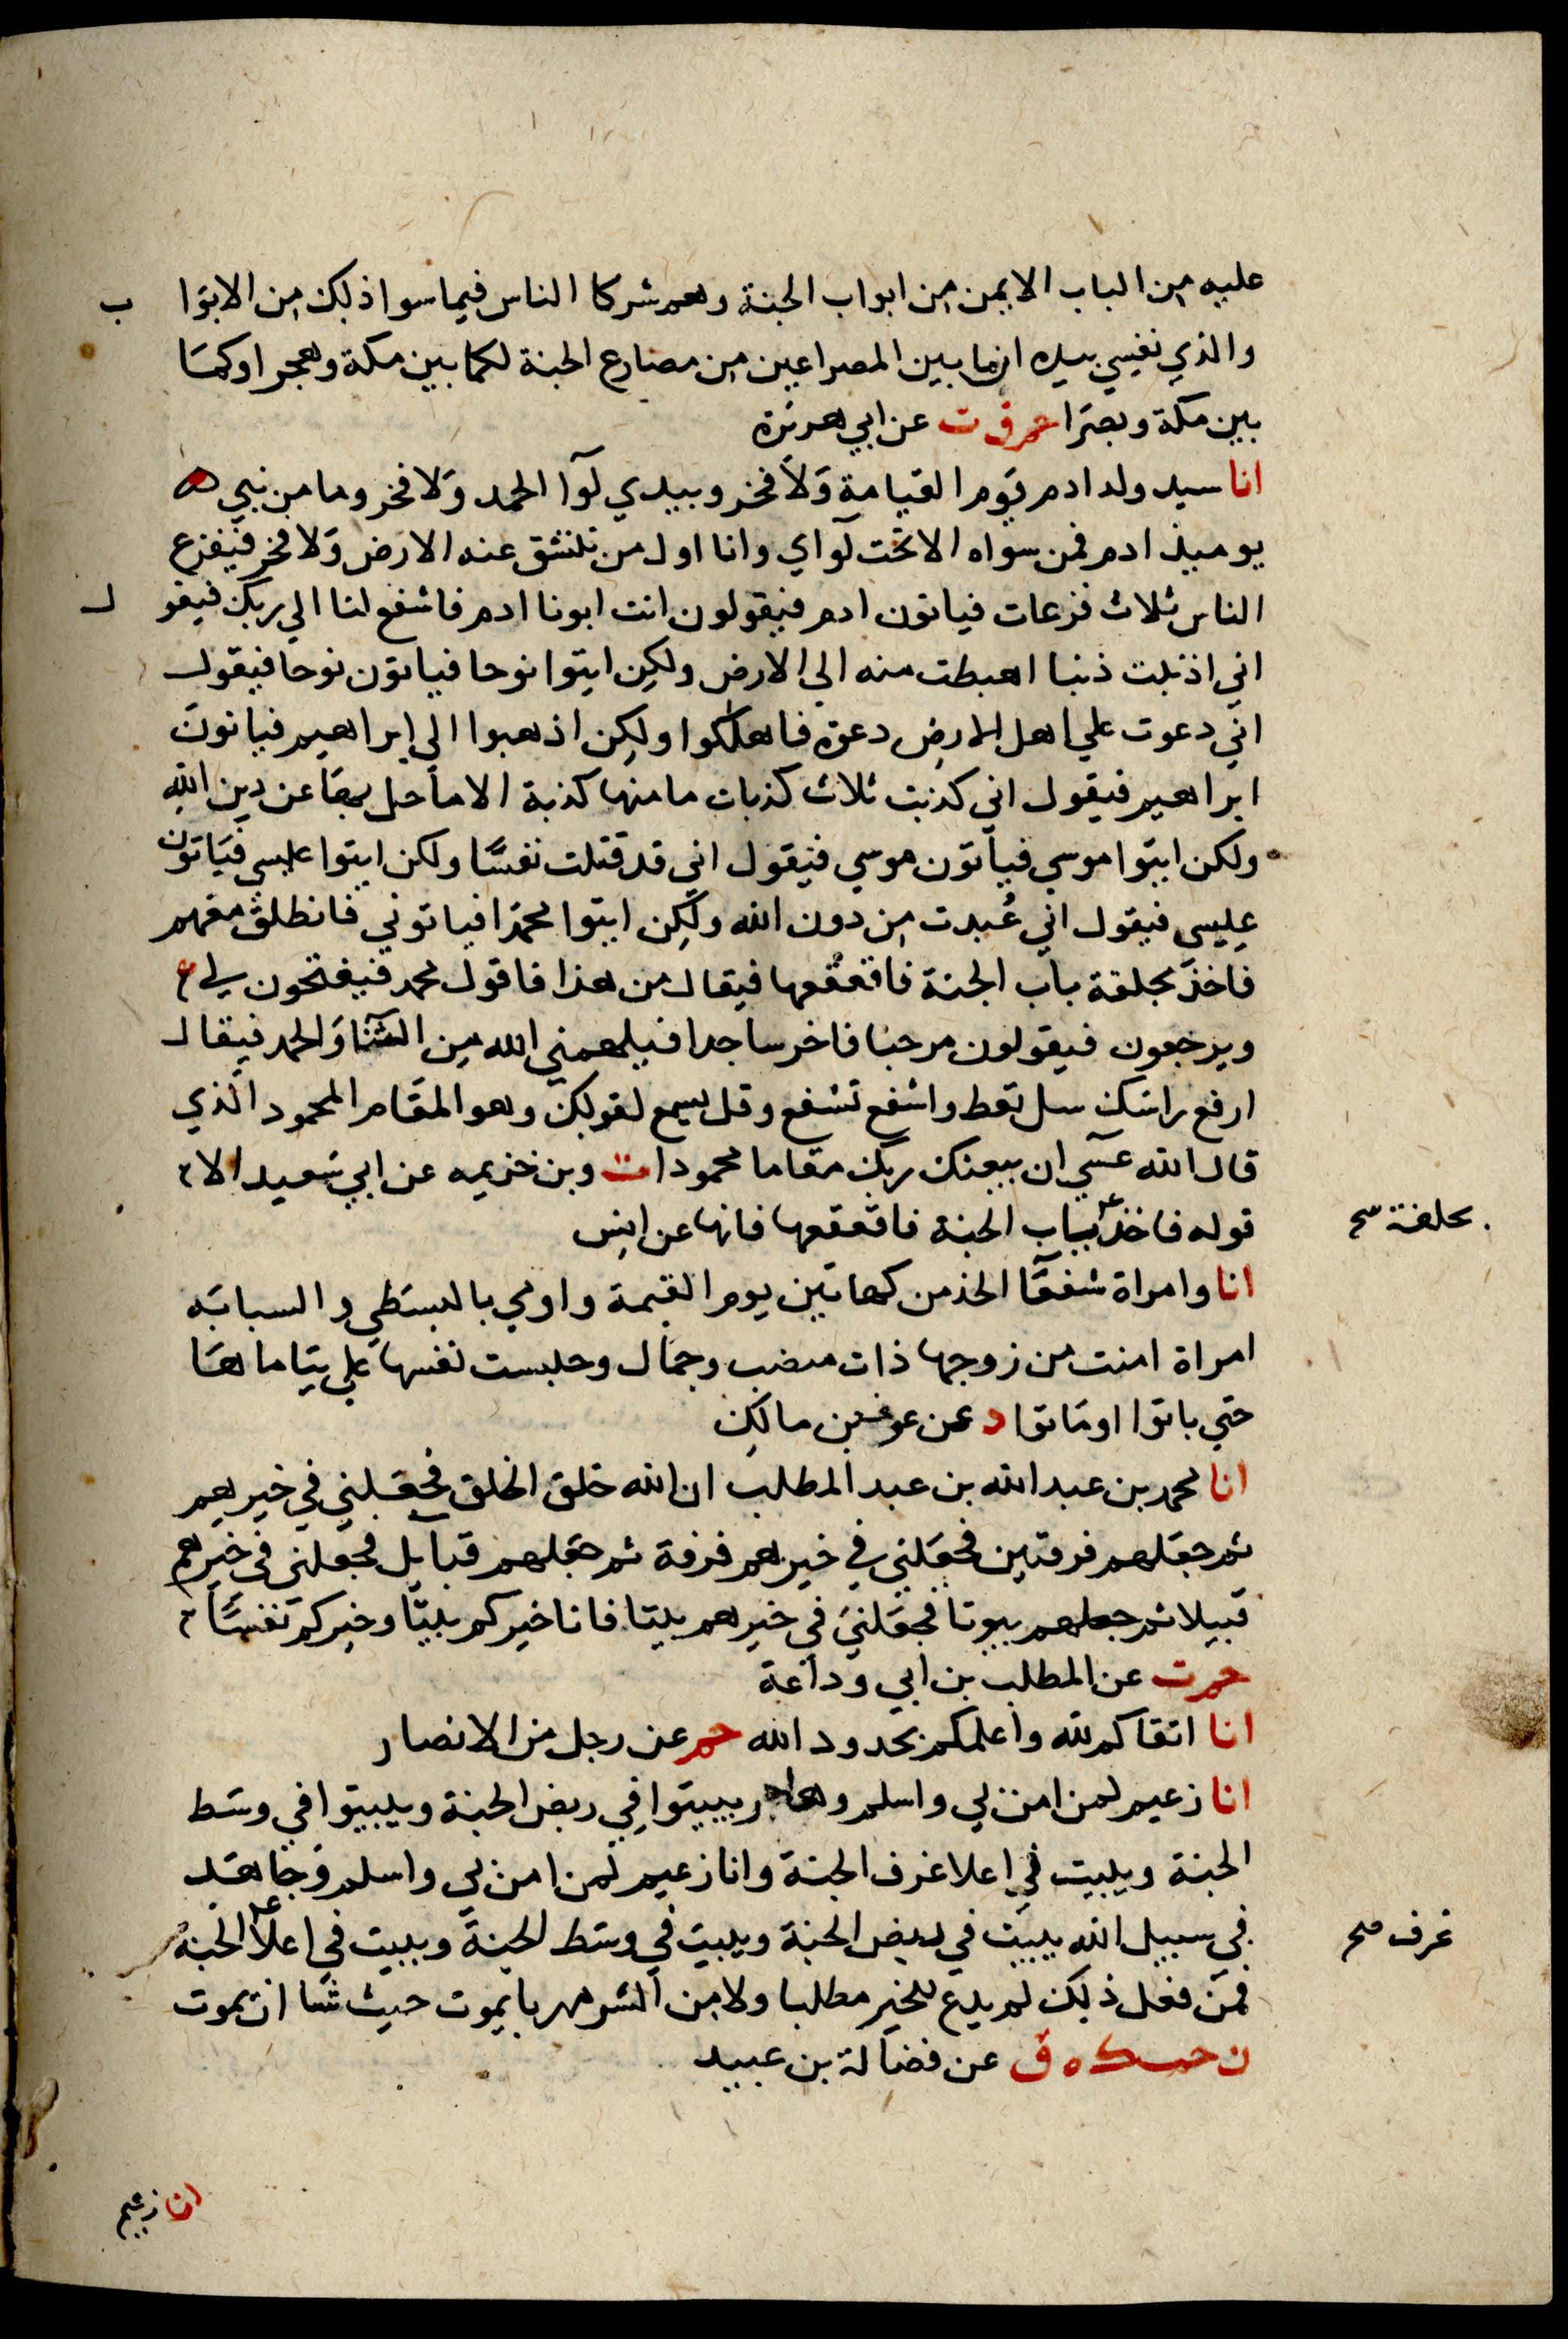 عليه من الباب الايمن من ابواب الجنة وهم شركا الناس فيما سوا ذلك من الابوا ب
والذي نفسي بيده ان ما بين المصراعين من مصارع الجنة لكما بين مكة وهجر او كما
بين مكة وبصرا حم ق ت عن ابي هريرة
انا سيد ولد ادم يوم القيامة ولا فخر وبيدي لوآ الحمد ولا فخر وما من نبي
يوميذ ادم فمن سواه الا تحت لوآي وانا اول من تنشق عنه الارض ولا فخر فيفزع
الناس ثلاث فزعات فياتون ادم فيقولون انت ابونا ادم فاشفع لنا الي ربك فيقو ل
اني اذنبت ذنبا اهبطت منه الي الارض ولكن ايتوا نوحا فياتون نوحا فيقول
اني دعوت علي اهل الارض دعوة فاهلكوا ولكن اذهبوا الي ابراهيم فياتون
ابراهيم فيقول اني كذبت ثلاث كذبات ما منها كذبة الا ما حل بها عن دين الله
ولكن ايتوا موسي فياتون موسي فيقول اني قد قتلت نفسا ولكن ايتوا عيسي فياتون
عيسي فيقول اني عُبدت من دون الله ولكن ايتوا محمدا فياتوني فانطلق معهم
فاخذ بحلقة باب الجنة فاقعقعها فيقال من هذا فاقول محمد فيفتحون لي
ويرخبون فيقولون مرحبا فاخر ساجدا فيلهمني الله من الثنا والحمد فيقال
ارفع راسك سل تعط واشفع تشفع وقل يسمع لقولك وهو المقام المحمود الذي
قال الله عسي ان يبعثك ربك مقاما محمودا ت وبن خزيمه عن ابي سعيد الا
قوله فاخذ بباب الجنة فاقعقعها فانها عن انس
بحلقة صح
انا وامراة شفعآ الخد من كهاتين يوم القيمة واومي بالوسطي والسبابه
امراة امنت من زوجها ذات منصب وجمال وحبست نفسها علي يتاماها
حتي باتوا او ماتوا د عن عوف بن مالك
انا محمد بن عبد الله بن عبد المطلب ان الله خلق الخلق فجعلني في خيرهم
ثم جعلهم فرقتين فجعلني في خيرهم فرقة ثم جعلهم قبايل فجعلني في خيرهم
قبيلا ثم جعلهم بيوتا فجعلني في خيرهم بيتا فانا خيركم بيتا وخيركم نفسا
حم ت عن المطلب بن ابي وداعة
انا اتقاكم لله واعلمكم بحدود الله حم عن رجل من الانصار
انا زعيم لمن امن بي واسلم وهاجر ببيتوا في ربض الجنة وببيتوا في وسط
الجنة وببيت في اعلا غرف الجنة وانا زعيم لمن امن بي واسلم وجاهد
في سبيل الله ببيت في ربض الجنة وببيت في وسط الجنة وببيت في اعلا الجنة
غرف صح
فمن فعل ذلك لم يدع للخير مطلبا ولا من الشر مهربا يموت حيث شا ان يموت
ن حب ك ه ق عن فضالة بن عبيد
انا زعيم